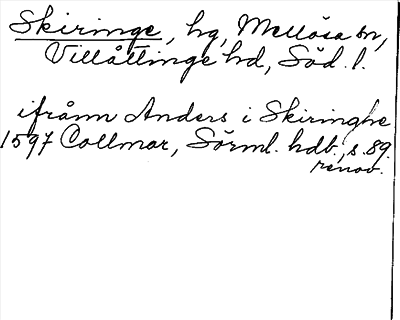 Skiringe, hg, Mellösa sn,
Villåttinge hd, Söd. l.
ifrånn Anders i Skiringhe
1597 Collmar, Sörml. hdb, s. 89.
renov.